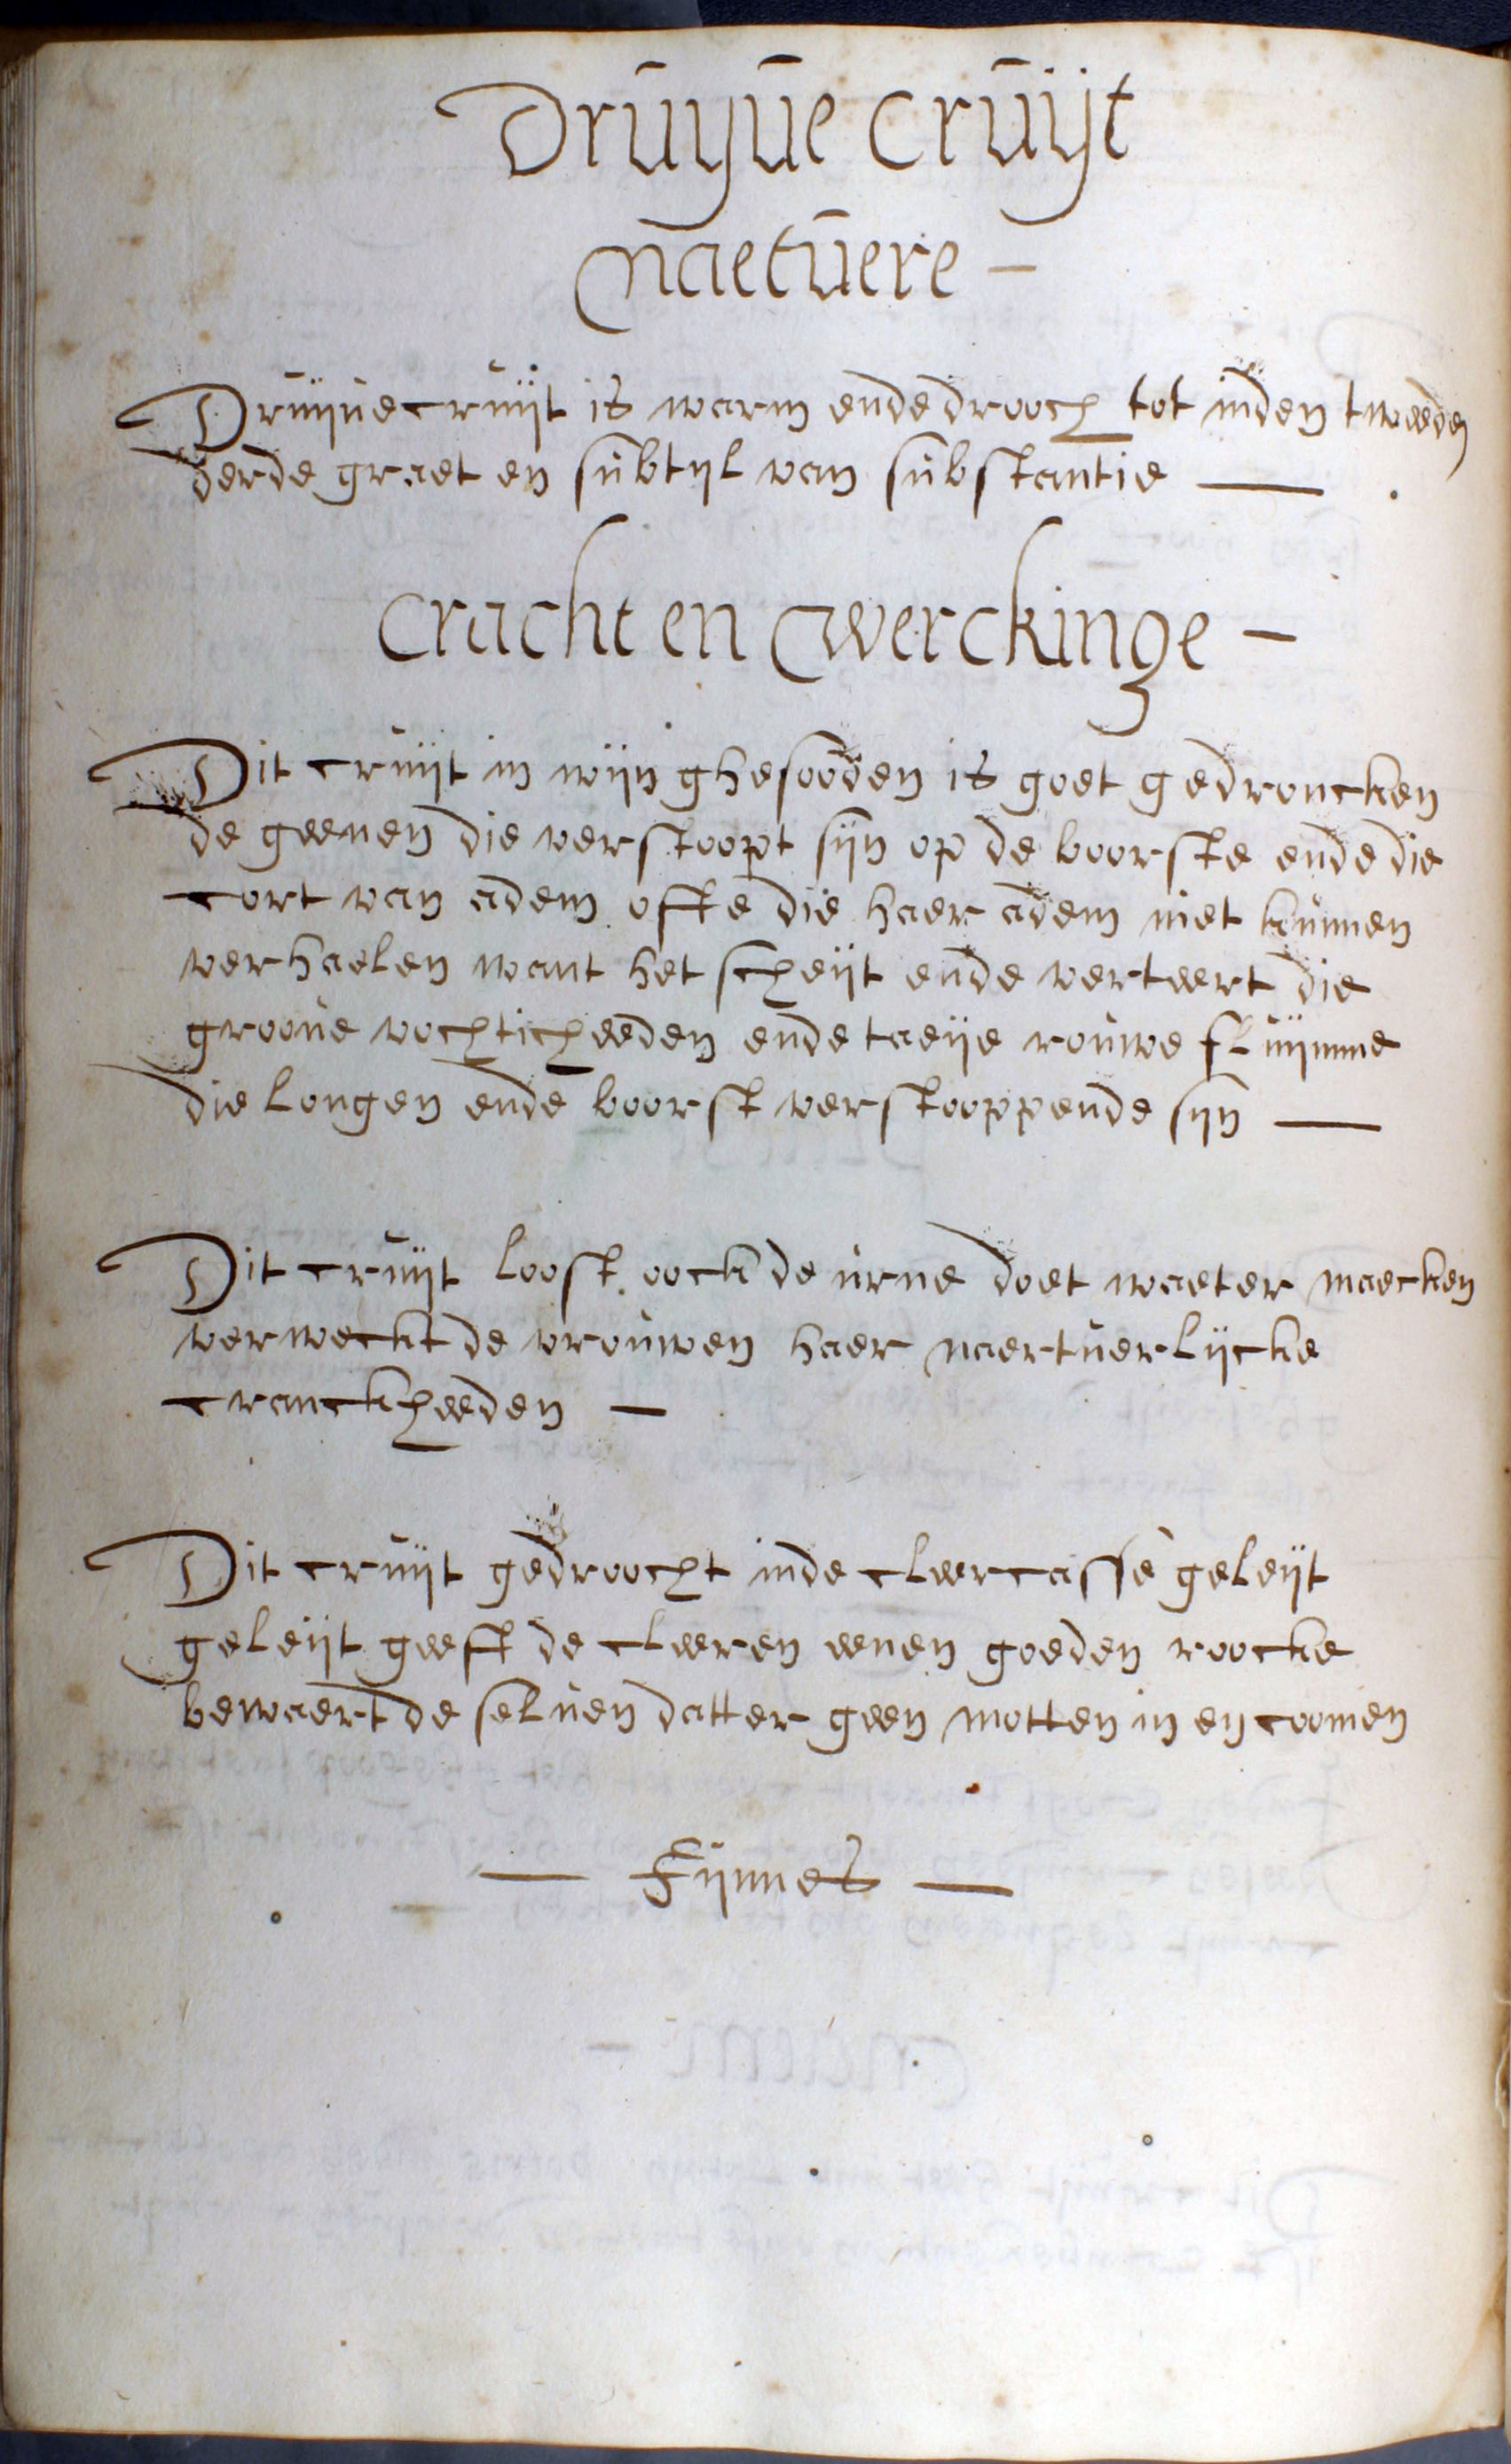 Druyue cruijt
naetuere –
Druijuecruijt is warm ende drooch tot inden tweeden
derde graet en subtyl van substantie —
cracht en werckinge –
Dit cruijt in wijn ghesooden is goet gedroncken
de geenen die verstoopt sijn op de boorste ende die
cort van adem ofte die haer adem niet kunnen
verhaelen want het scheijt ende verteert die
grooue vochticheeden ende taeije rouwe fluijmme
die longen ende boorst verstooppende sijn —
Dit cruijt loost oock de urne doet waeter maecken
verweckt de vrouwen haer naertuerlijcke
cranckheeden –
Dit cruijt gedroocht inde cleercasse geleijt
geleijt geeft de cleeren eenen goeden roocke
bewaert de seluen datter geen motten in en coomen
— Fijnnes —